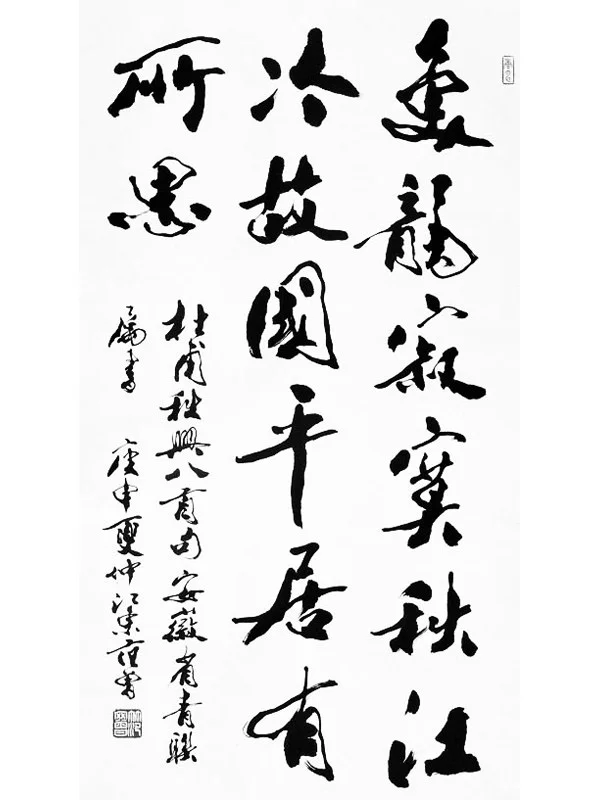 魚龍寂寞秋江
冷故國平居有
所思
杜甫秋興八首句安徽省青聯
属書 庚申夏仲江東范曾